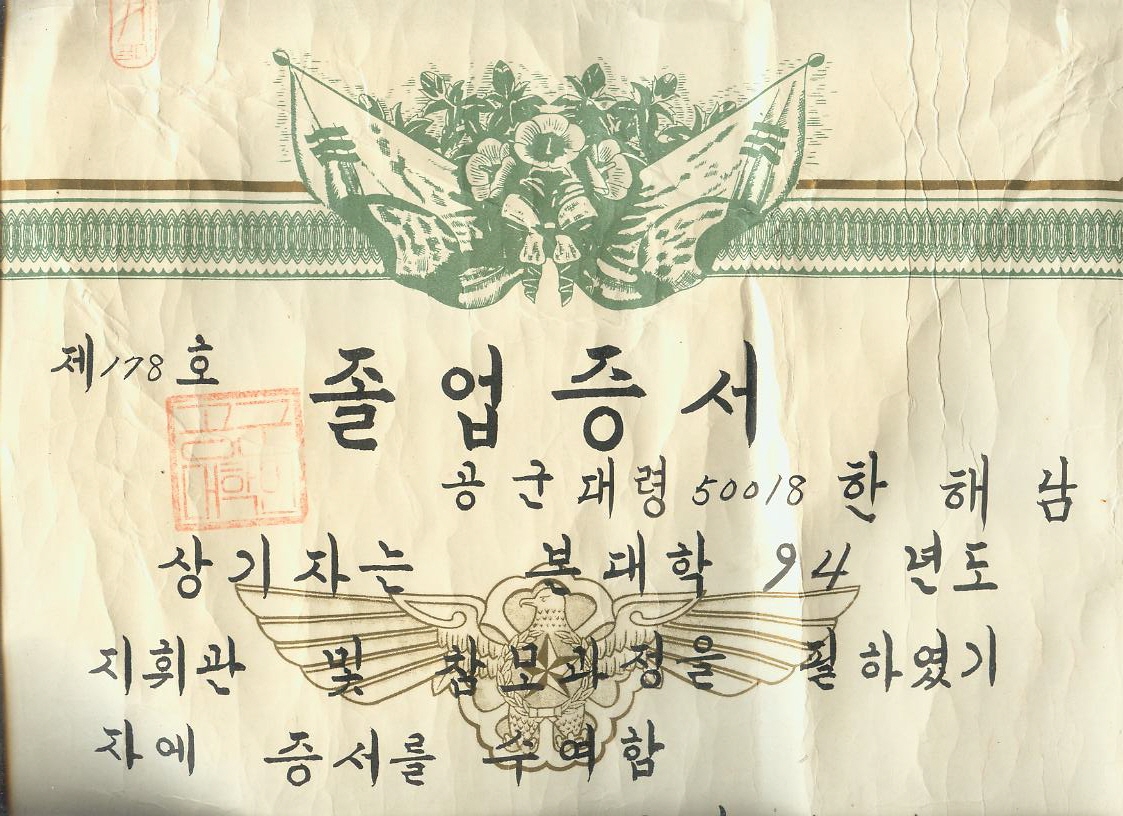 제178호
졸업증서
공군대령 50018 한해남
상기자는 본대학 94 년도
지휘관 및 참모과정을 필하였기
자에 증서를 수여함